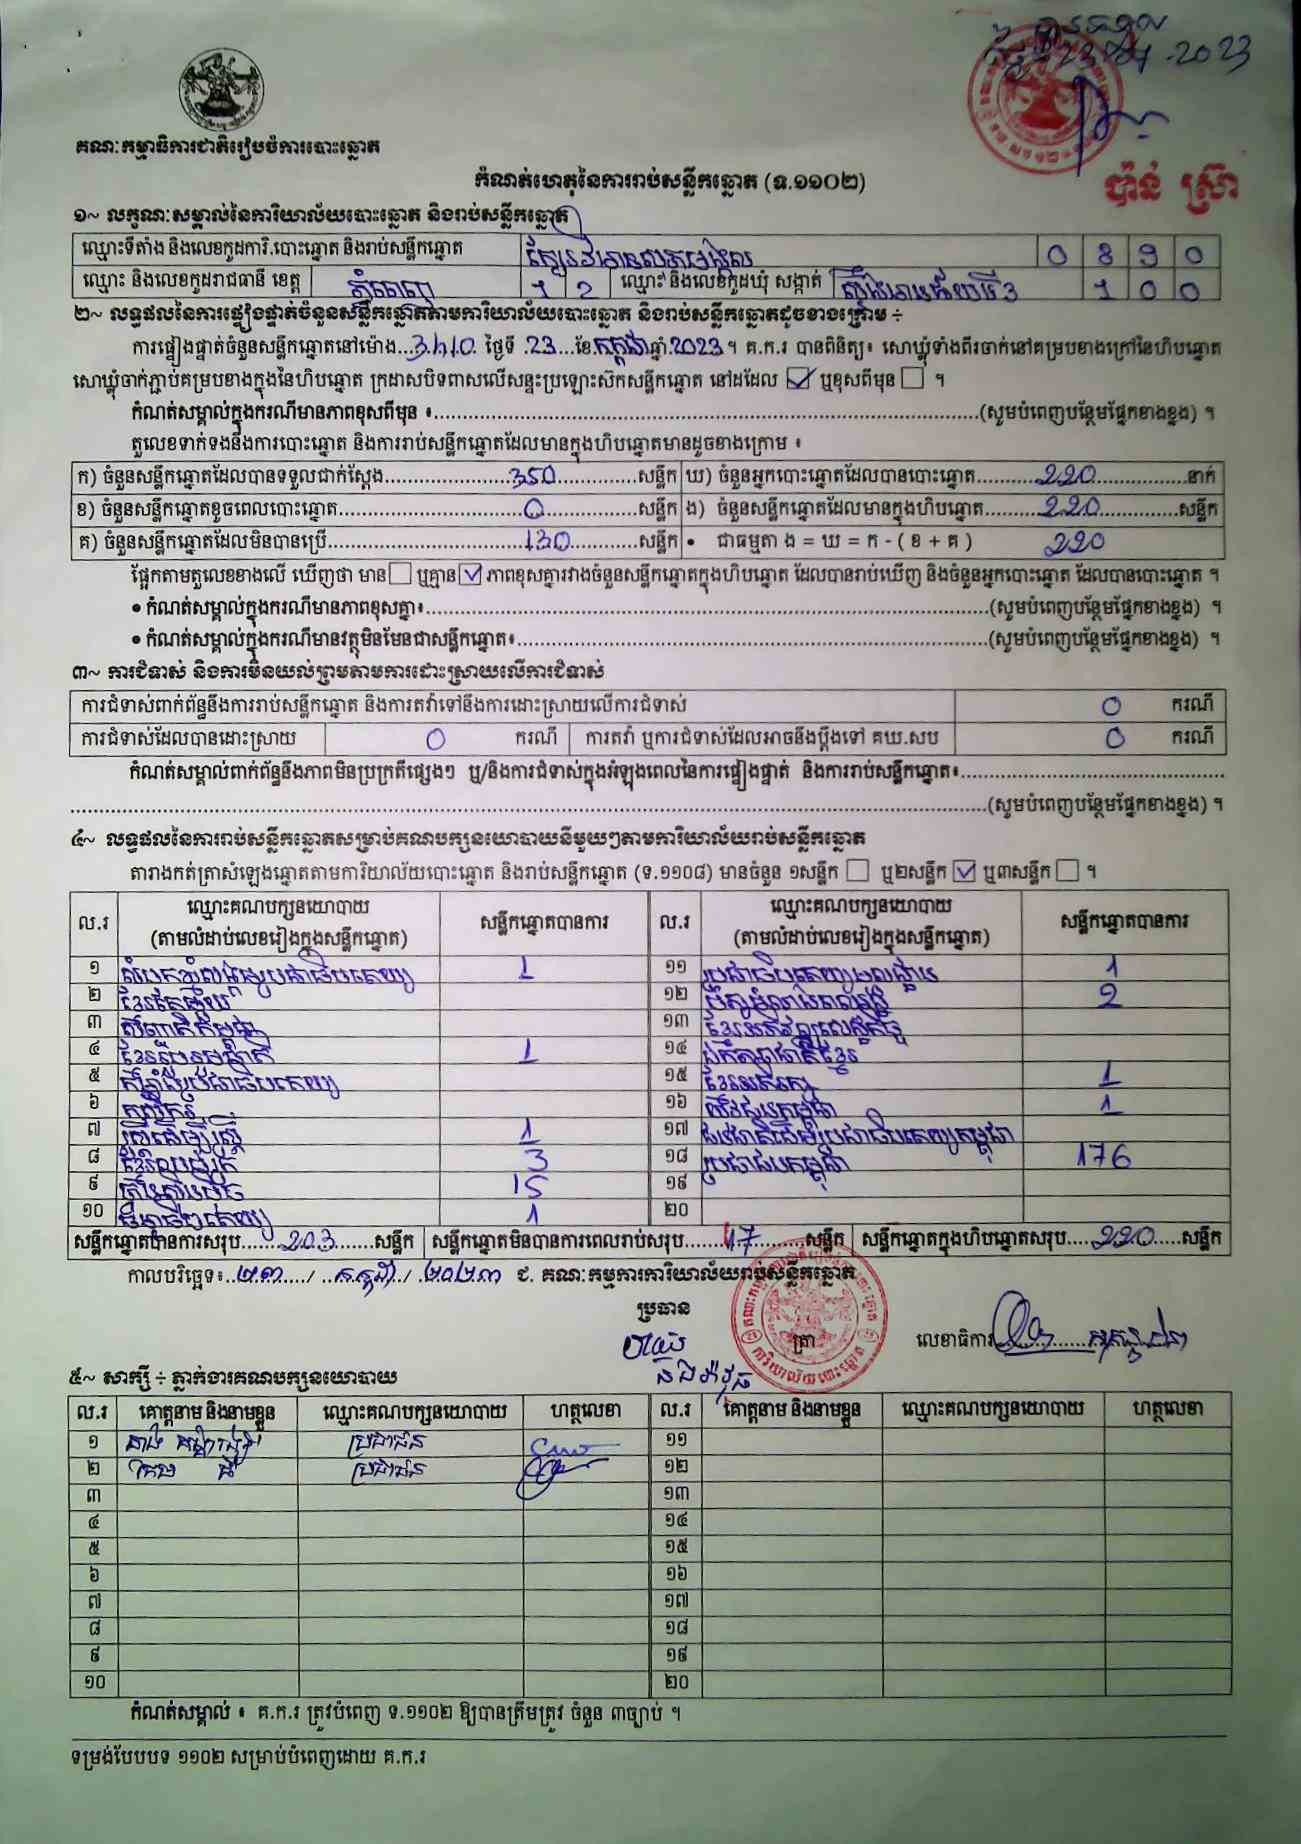 បានទទួល
ថ្ងៃ 23 - 2023
គណៈកម្មាធិការជាតិរៀបចំការបោះឆ្នោត
កំណត់ហេតុនៃការរាប់សន្លឹកឆ្នោត (ទ.១១០២)
ប៉ាន់ ស្រ៊ា
១~ លក្ខណៈសម្គាល់នៃការិយាល័យបោះឆ្នោត និងរាប់សន្លឹកឆ្នោត
ឈ្មោះទីតាំង និងលេខកូដការិ.បោះឆ្នោត និងរាប់សន្លឹកឆ្នោត 0 8 9 0
ឈ្មោះ និងលេខកូដរាជធានី ខេត្ត ភ្នំពេញ 1 2 ឈ្មោះ និងលេខកូដឃុំ សង្កាត់ ស្ទឹងមានជ័យទី3 1 0 0
២~ លទ្ធផលនៃការផ្ទៀងផ្ទាត់ចំនួនសន្លឹកឆ្នោតតាមការិយាល័យបោះឆ្នោត និងរាប់សន្លឹកឆ្នោតដូចខាងក្រោម ÷
ការផ្ទៀងផ្ទាត់ចំនួនសន្លឹកឆ្នោតនៅម៉ោង...3h10. ថ្ងៃទី .23...ខែ.កក្កដាឆ្នាំ.2023.។ គ.ក.រ បានពិនិត្យ៖ សោឃ្លុំទាំងពីរចាក់នៅគម្របខាងក្រៅនៃហិបឆ្នោត
សោឃ្លុំចាក់ភ្ជាប់គម្របខាងក្នុងនៃហិបឆ្នោត ក្រដាសបិទពាសលើសន្ទះប្រឡោះស៊កសន្លឹកឆ្នោត នៅដដែល ☑ ឬខុសពីមុន ☐ ។
កំណត់សម្គាល់ក្នុងករណីមានភាពខុសពីមុន ៖..........(សូមបំពេញបន្ថែមផ្នែកខាងខ្នង) ។
តួលេខទាក់ទងនឹងការបោះឆ្នោត និងការរាប់សន្លឹកឆ្នោតដែលមានក្នុងហិបឆ្នោតមានដូចខាងក្រោម ៖
ក) ចំនួនសន្លឹកឆ្នោតដែលបានទទួលជាក់ស្តែង..........350..........សន្លឹក ឃ) ចំនួនអ្នកបោះឆ្នោតដែលបានបោះឆ្នោត..........220..........នាក់
ខ) ចំនួនសន្លឹកឆ្នោតខូចពេលបោះឆ្នោត..........0..........សន្លឹក ង) ចំនួនសន្លឹកឆ្នោតដែលមានក្នុងហិបឆ្នោត..........220..........សន្លឹក
គ) ចំនួនសន្លឹកឆ្នោតដែលមិនបានប្រើ..........130..........សន្លឹក • ជាធម្មតា ង = ឃ = ក - ( ខ + គ ) 220
ផ្អែកតាមតួលេខខាងលើ ឃើញថា មាន ☐ ឬគ្មាន ☑ ភាពខុសគ្នារវាងចំនួនសន្លឹកឆ្នោតក្នុងហិបឆ្នោត ដែលបានរាប់ឃើញ និងចំនួនអ្នកបោះឆ្នោត ដែលបានបោះឆ្នោត ។
• កំណត់សម្គាល់ក្នុងករណីមានភាពខុសគ្នា៖..........(សូមបំពេញបន្ថែមផ្នែកខាងខ្នង) ។
• កំណត់សម្គាល់ក្នុងករណីមានវត្ថុមិនមែនជាសន្លឹកឆ្នោត៖..........(សូមបំពេញបន្ថែមផ្នែកខាងខ្នង) ។
៣~ ការជំទាស់ និងការមិនយល់ព្រមតាមការដោះស្រាយលើការជំទាស់
ការជំទាស់ពាក់ព័ន្ធនឹងការរាប់សន្លឹកឆ្នោត និងការតវ៉ាទៅនឹងការដោះស្រាយលើការជំទាស់ 0 ករណី
ការជំទាស់ដែលបានដោះស្រាយ 0 ករណី ការតវ៉ា ឬការជំទាស់ដែលអាចនឹងប្តឹងទៅ គឃ.សប 0 ករណី
កំណត់សម្គាល់ពាក់ព័ន្ធនឹងភាពមិនប្រក្រតីផ្សេងៗ ឬ/និងការជំទាស់ក្នុងអំឡុងពេលនៃការផ្ទៀងផ្ទាត់ និងការរាប់សន្លឹកឆ្នោត៖..........
..........(សូមបំពេញបន្ថែមផ្នែកខាងខ្នង) ។
៤~ លទ្ធផលនៃការរាប់សន្លឹកឆ្នោតសម្រាប់គណបក្សនយោបាយនីមួយៗតាមការិយាល័យរាប់សន្លឹកឆ្នោត
តារាងកត់ត្រាសំឡេងឆ្នោតតាមការិយាល័យបោះឆ្នោត និងរាប់សន្លឹកឆ្នោត (ទ.១១០៨) មានចំនួន ១សន្លឹក ☐ ឬ២សន្លឹក ☑ ឬ៣សន្លឹក ☐ ។
ល.រ ឈ្មោះគណបក្សនយោបាយ (តាមលំដាប់លេខរៀងក្នុងសន្លឹកឆ្នោត) សន្លឹកឆ្នោតបានការ ល.រ ឈ្មោះគណបក្សនយោបាយ (តាមលំដាប់លេខរៀងក្នុងសន្លឹកឆ្នោត) សន្លឹកឆ្នោតបានការ
១ សំបុកឃ្មុំសង្គមប្រជាធិបតេយ្យ 1 ១១ ប្រជាធិបតេយ្យមូលដ្ឋាន 1
២ ១២ 2
៣ ១៣
៤ ខ្មែររួបរួមជាតិ 1 ១៤
៥ ១៥ ខ្មែរអភិរក្ស 1
៦ កសិករ ១៦ 1
៧ ស្ត្រីដើម្បីស្ត្រី 1 ១៧
៨ 3 ១៨ ប្រជាជនកម្ពុជា 176
៩ ហ្វ៊ុនស៊ិនប៉ិច 15 ១៩
១០ ធម្មាធិបតេយ្យ 1 ២០
សន្លឹកឆ្នោតបានការសរុប......203......សន្លឹក សន្លឹកឆ្នោតមិនបានការពេលរាប់សរុប......17......សន្លឹក សន្លឹកឆ្នោតក្នុងហិបឆ្នោតសរុប.....220.....សន្លឹក
កាលបរិច្ឆេទ៖..២៣...../ ..កក្កដា../ .២០២៣ ជ. គណៈកម្មការការិយាល័យរាប់សន្លឹកឆ្នោត
ប្រធាន
ត្រា
លេខាធិការ
៥~ សាក្សី ÷ ភ្នាក់ងារគណបក្សនយោបាយ
ល.រ គោត្តនាម និងនាមខ្លួន ឈ្មោះគណបក្សនយោបាយ ហត្ថលេខា ល.រ គោត្តនាម និងនាមខ្លួន ឈ្មោះគណបក្សនយោបាយ ហត្ថលេខា
១ ប្រជាជន ១១
២ ប្រជាជន ១២
៣ ១៣
៤ ១៤
៥ ១៥
៦ ១៦
៧ ១៧
៨ ១៨
៩ ១៩
១០ ២០
កំណត់សម្គាល់ ៖ គ.ក.រ ត្រូវបំពេញ ទ.១១០២ ឱ្យបានត្រឹមត្រូវ ចំនួន ៣ច្បាប់ ។
ទម្រង់បែបបទ ១១០២ សម្រាប់បំពេញដោយ គ.ក.រ